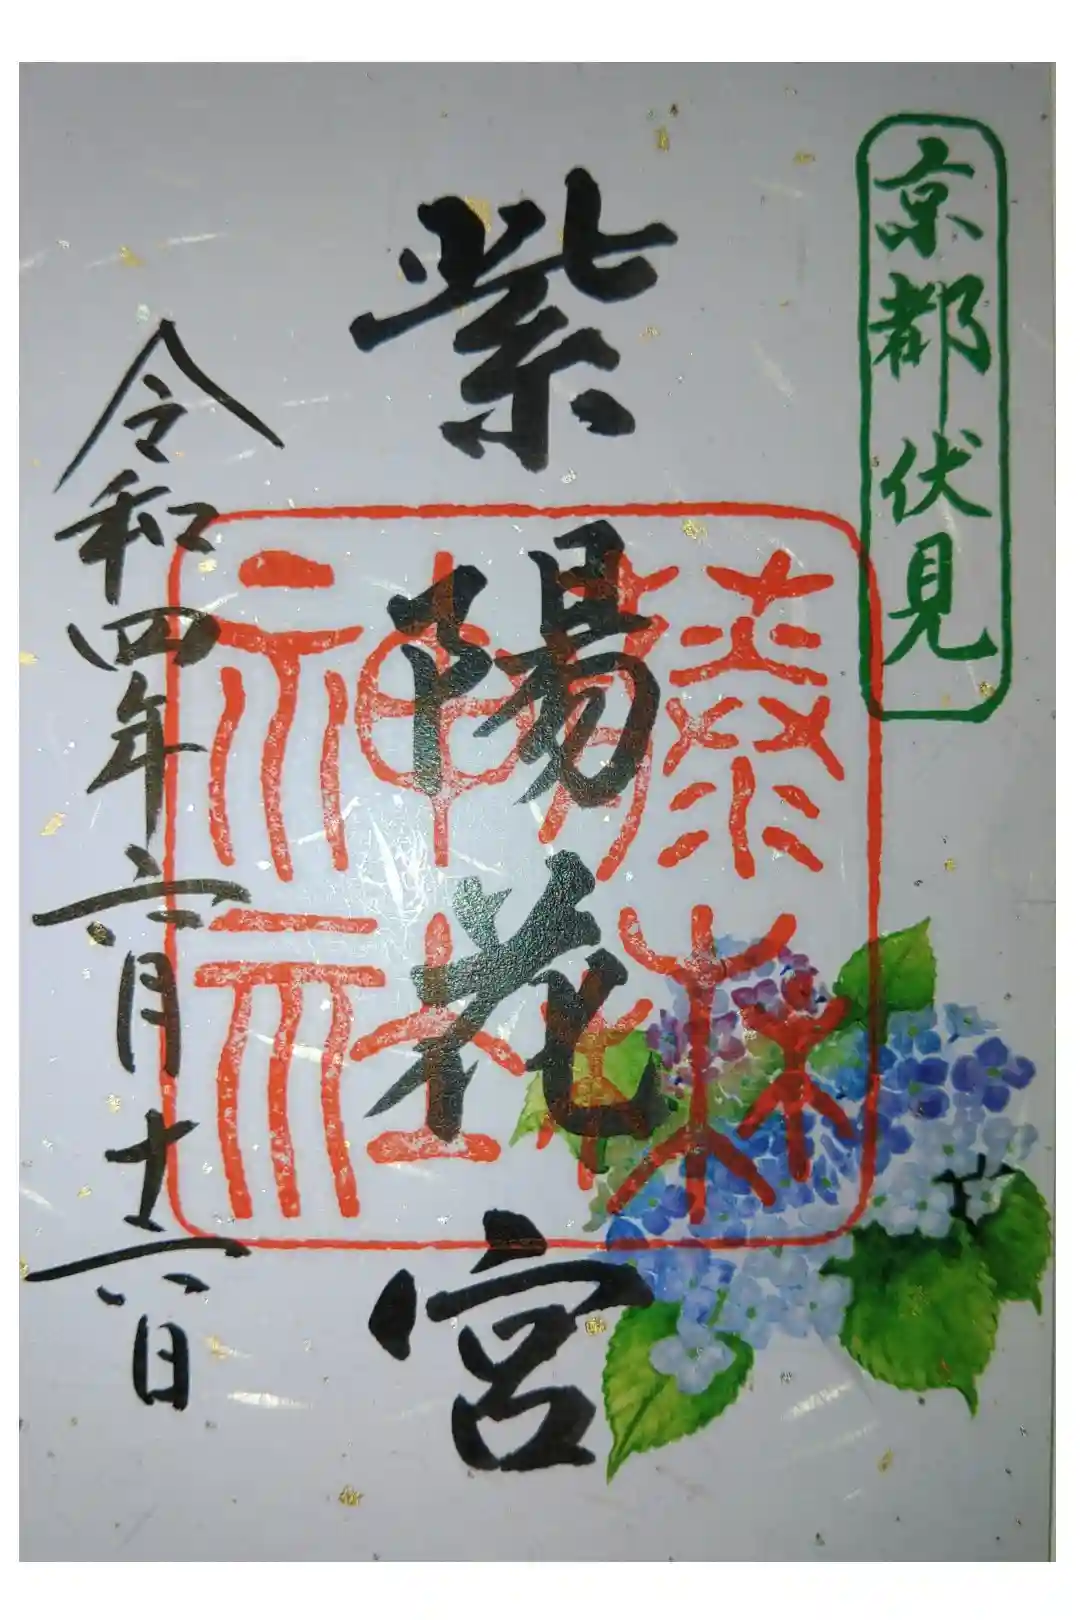 京都伏見
紫陽花宮
藤森神社
令和四年六月十八日